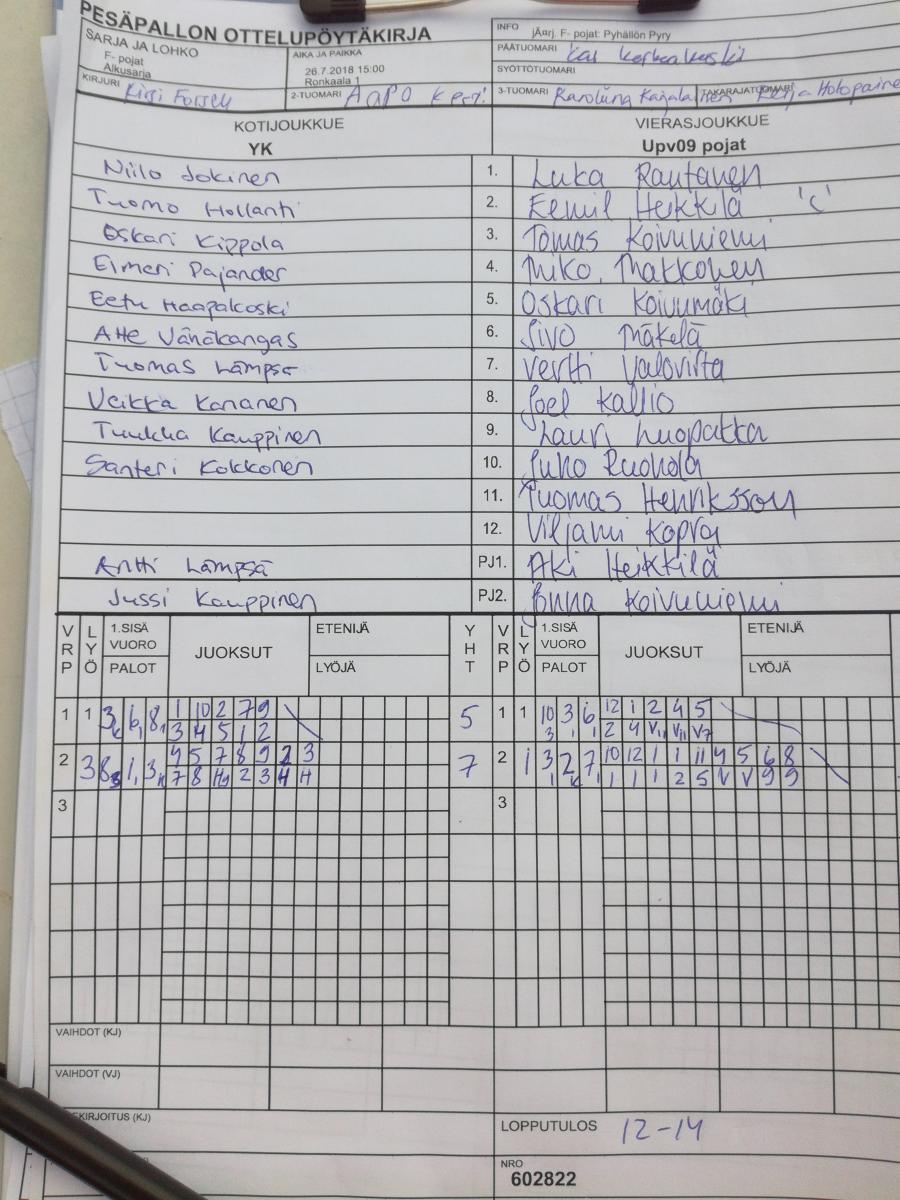 PESÄPALLON OTTELUPÖYTÄKIRJA
SARJA JA LOHKO
F- pojat
Alkusarja
AIKA JA PAIKKA
26.7.2018 15:00
Ronkaala 1
INFO jÄärj. F- pojat: Pyhällön Pyry
PÄÄTUOMARI
SYÖTTÖTUOMARI
KIRJURI Kirsi
2-TUOMARI Aapo
3-TUOMARI Karoliina
TAKARAJATUOMARI
KOTIJOUKKUE VIERASJOUKKUE
YK Upv09 pojat
Niilo Jokinen 1. Luka Rautanen
Tuomo Hollanti 2. Eemil Heikkilä 'C'
Oskari Kippola 3. Tomas Koivuniemi
Elmeri Pajander 4. Miko Makkonen
Eetu Haapakoski 5. Oskari Koivumäki
Atte Vänäkangas 6. Sivo Mäkelä
Tuomas Lämpsä 7. Vertti Valovirta
Veikka Kananen 8. Joel Kallio
Tuukka Kauppinen 9. Lauri Luopatka
Santeri Kokkonen 10. Juho Ruohola
11. Tuomas Henriksson
12. Viljami Kopra
Antti Lämpsä PJ1. Aki Heikkilä
Jussi Kauppinen PJ2. Koivuniemi
VRP LYÖ 1.SISÄ VUORO PALOT JUOKSUT ETENIJÄ LYÖJÄ YHT VRP LYÖ 1.SISÄ VUORO PALOT JUOKSUT ETENIJÄ LYÖJÄ
1 1 3 6 8 1 10 2 7 9 5 1 1 10 3 6 12 1 2 4 5
3 4 5 1 2
2 3 4 5 7 8 9 2 3 7 2 1 3 2 7 10 12 1 1 11 4 5 6 8
7 8 2 3 4 H 1 1 1 2 5 V V 9 9
3 3
VAIHDOT (KJ)
VAIHDOT (VJ)
EKIRJOITUS (KJ)
LOPPUTULOS 12-14
NRO
602822